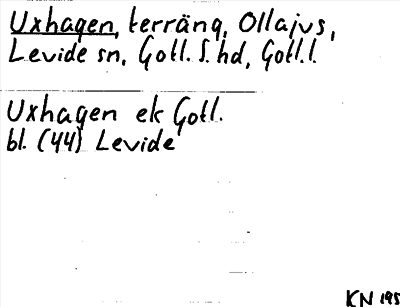 Uxhagen, terräng, Ollajvs,
Levide sn, Gotl. S. hd, Gotl. l.
Uxhagen ek Gotl.
bl. (44) Levide
KN 195